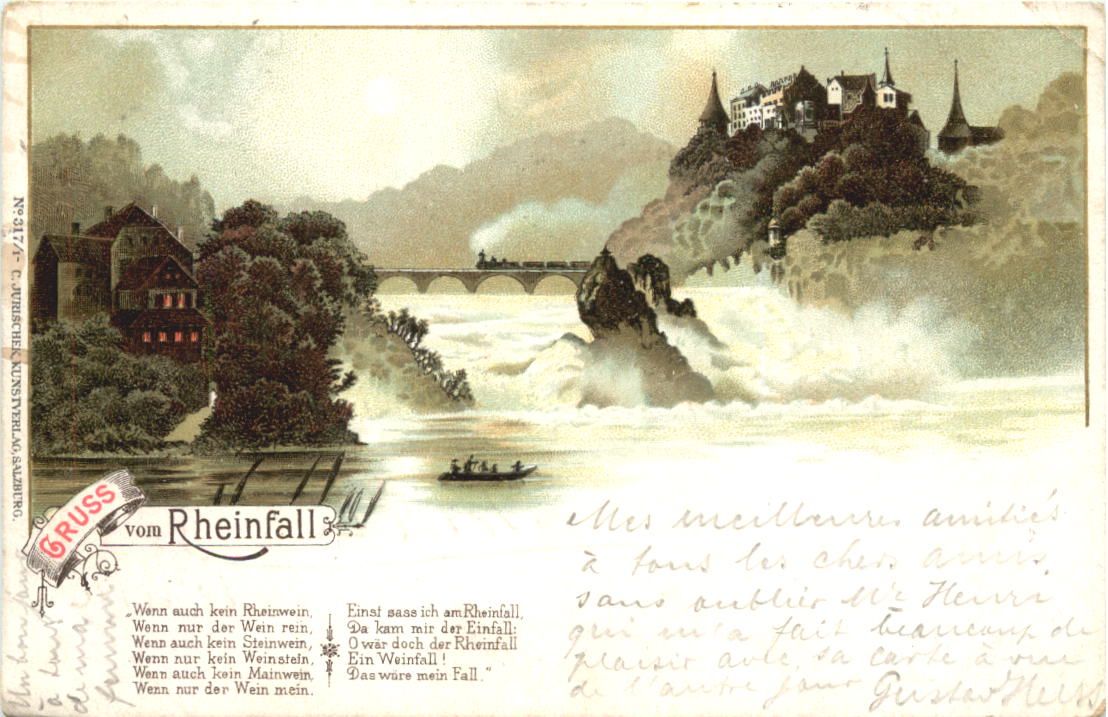 No. 317/1- C. JURISCHEK, KUNSTVERLAG, SALZBURG.
GRUSS
vom Rheinfall
„Wenn auch kein Rheinwein,
Wenn nur der Wein rein,
Wenn auch kein Steinwein,
Wenn nur kein Weinstein,
Wenn auch kein Mainwein,
Wenn nur der Wein mein.
Einst sass ich am Rheinfall,
Da kam mir der Einfall:
O wär doch der Rheinfall
Ein Weinfall!
Das wäre mein Fall."
Mes meilleures amitiés
à tous les chers amis,
sans oublier Mr Henri
qui m'a fait beaucoup de
plaisir avec sa carte à vue
de l'autre jour Gustav
Un bon
à
de ma